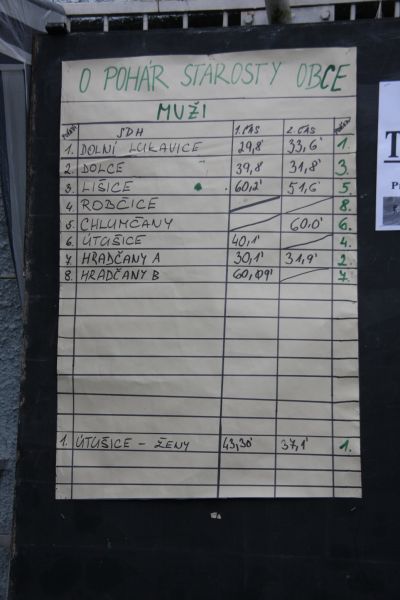 O POHÁR STAROSTY OBCE
MUŽI
SDH 1. ČAS 2. ČAS
1. DOLNÍ LUKAVICE 29,8' 33,6' 1.
2. DOLCE 39,8' 31,8' 3.
3. LIŠICE 60,2' 51,6' 5.
4. ROBČICE 8.
5. CHLUMČANY 60.0' 6.
6. ÚTUŠICE 40,1' 4.
7. HRADČANY A 30,1' 31,9' 2.
8. HRADČANY B 60,09' 7.
1. ÚTUŠICE – ŽENY 43,30' 37,1' 1.